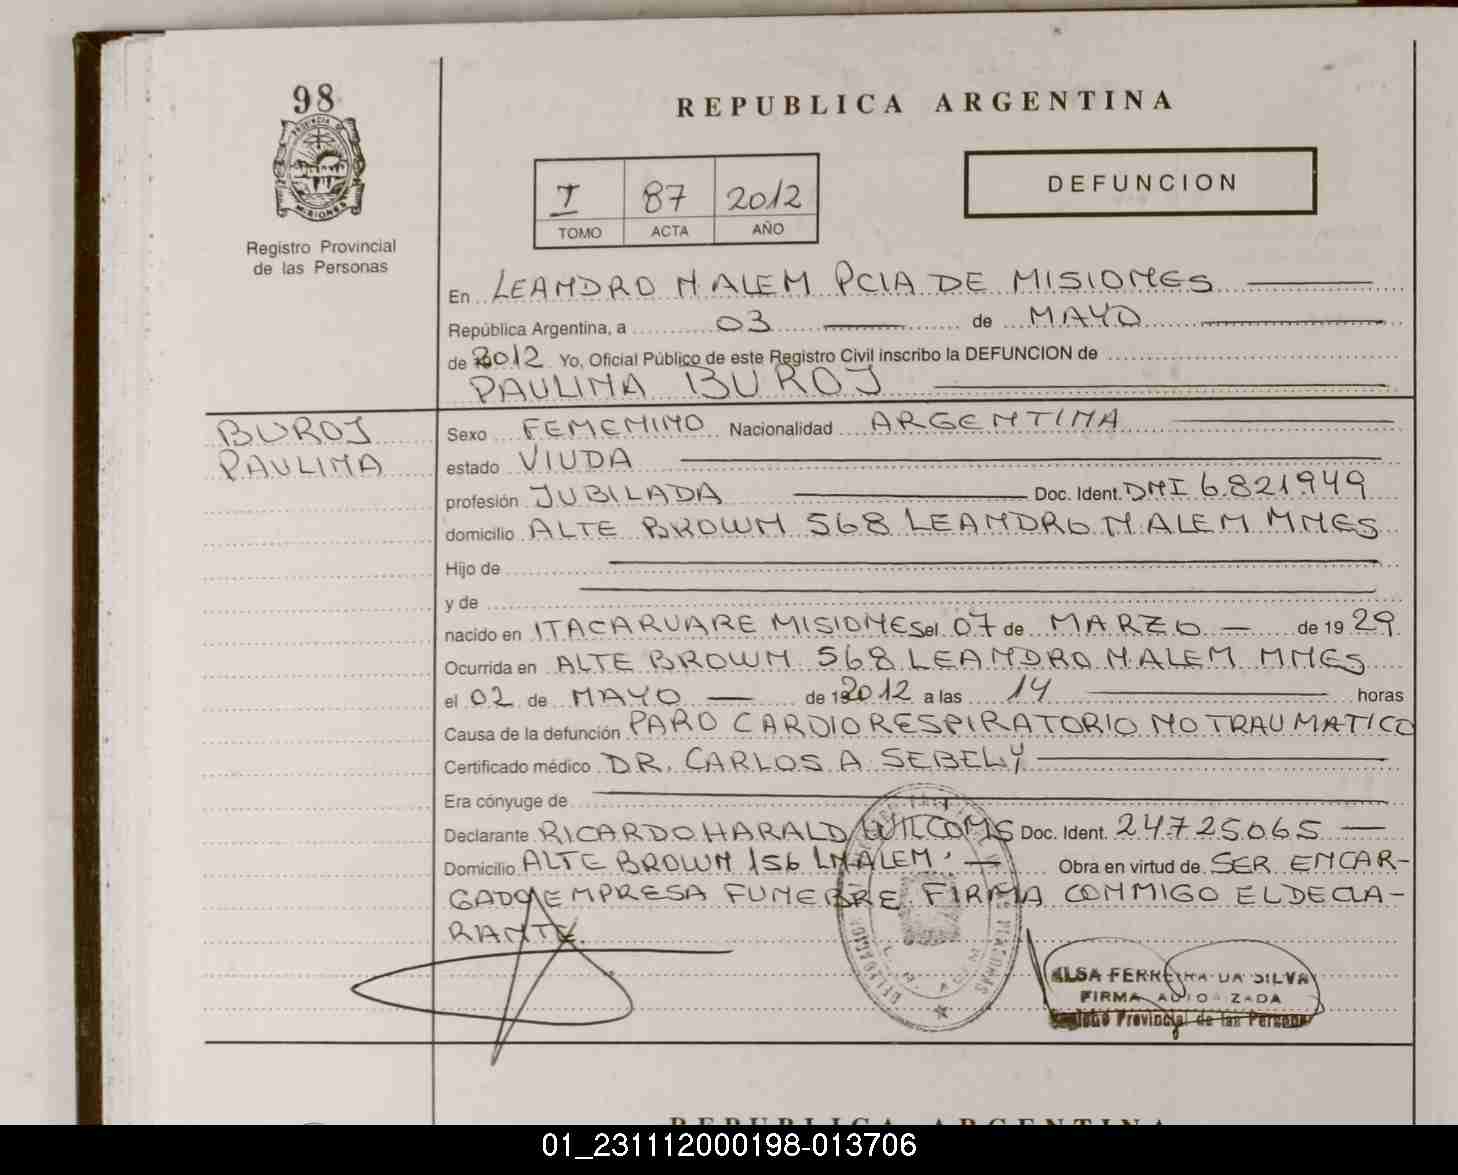 98
REPUBLICA ARGENTINA
PROVINCIA DE
MISIONES
Registro Provincial
de las Personas
I 87 2012
TOMO ACTA AÑO
DEFUNCION
En LEANDRO N ALEM PCIA DE MISIONES
República Argentina, a 03 de MAYO
de 2012 Yo, Oficial Público de este Registro Civil inscribo la DEFUNCION de
PAULINA BUROJ
BUROJ
PAULINA
Sexo FEMENINO Nacionalidad ARGENTINA
estado VIUDA
profesión JUBILADA Doc. Ident. DNI 6.821.949
domicilio ALTE BROWN 568 LEANDRO N ALEM MNES
Hijo de
y de
nacido en ITACARUARE MISIONES el 07 de MARZO de 19 29
Ocurrida en ALTE BROWN 568 LEANDRO N ALEM MNES
el 02 de MAYO de 2012 a las 14 horas
Causa de la defunción PARO CARDIORESPIRATORIO NO TRAUMATICO
Certificado médico DR. CARLOS A SEBELY
Era cónyuge de
Declarante RICARDO HARALD WILCOMS Doc. Ident. 24.725.065
Domicilio ALTE BROWN 156 LNALEM. Obra en virtud de SER ENCAR-
GADO EMPRESA FUNEBRE. FIRMA CONMIGO EL DECLA-
RANTE.
ILSA FERREIRA DA SILVA
FIRMA AUTORIZADA
Registro Provincial de las Personas
REPUBLICA ARGENTINA
01_231112000198-013706